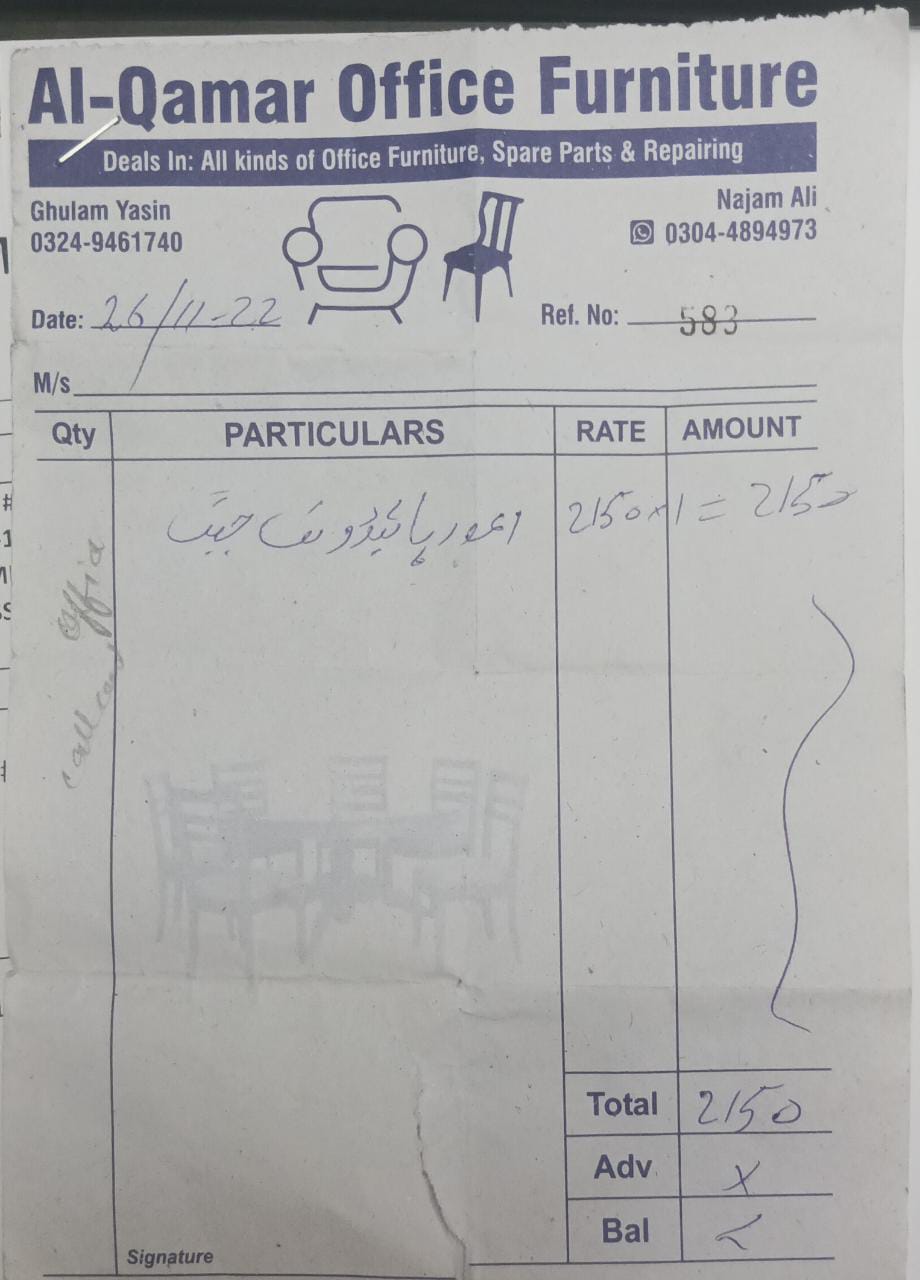 Al-Qamar Office Furniture
Deals In: All kinds of Office Furniture, Spare Parts & Repairing
Ghulam Yasin
0324-9461740
Najam Ali
0304-4894973
Date: 26/11-22
Ref. No: 583
M/s
Qty PARTICULARS RATE AMOUNT
2150x1 = 2150
Total 2150
Adv x
Bal
Signature